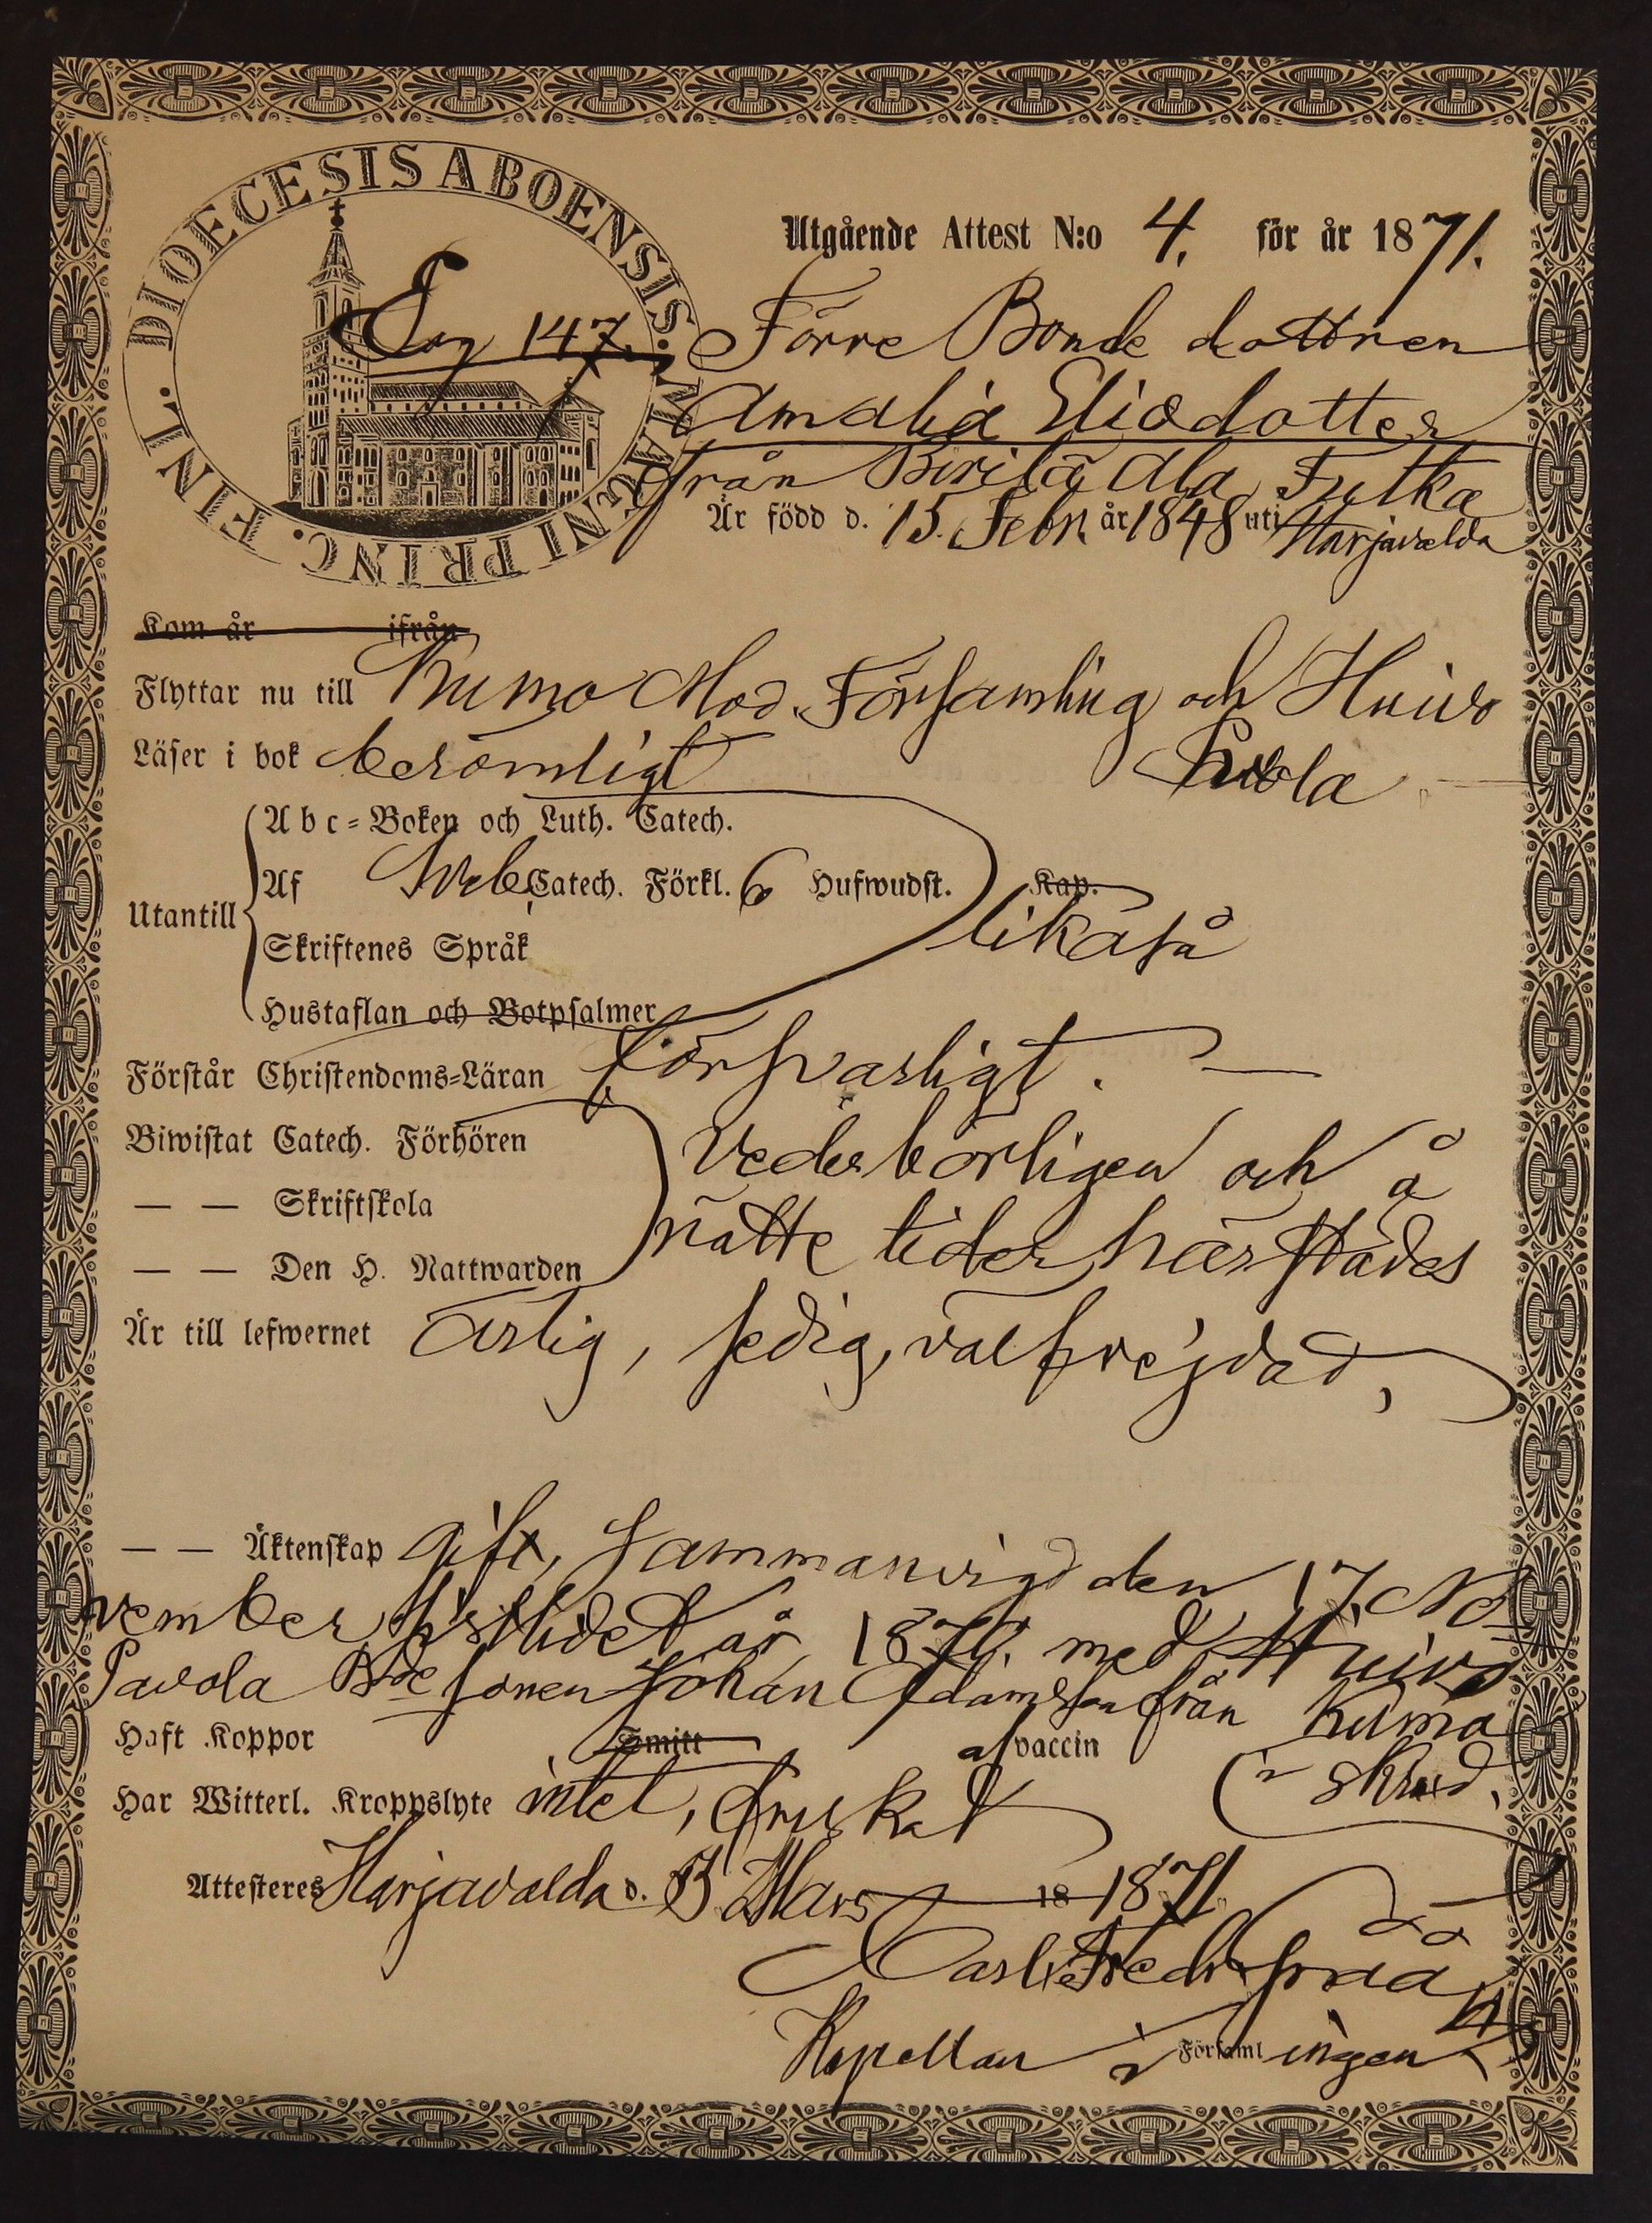 DIOECESIS ABOENSIS. MAGNI PRINC. FINL.
Utgående Attest N:o 4. för år 1871.
Pag 147.
Förre Bonde dottren
Amalia Eliædotter
från Ala
Är född d. 15. Febr. år 1848 uti Harjavalda
Kom år ifrån
Flyttar nu till Kumo Mod. Församling och Huivo
Läser i bok berömligt
Abc=Boken och Luth. Catech.
Utantill Af Sveb. Catech. Förkl. 6 Hufwudst. Kap.
likaså
Skriftenes Språk
Hustaflan och Botpsalmer
Förstår Christendoms=Läran försvarligt.
Biwistat Catech. Förhören vederbörligen och å
— — Skriftskola
rätte tider härstädes
— — Den H. Nattwarden
Är till lefwernet ärlig, sedig, välfrejdad,
— — Äktenskap gift, sammanvigd den 17. No
vember sistlidet år 1870. med Huivo
Pavola Bde sonen Johan Adamsson från Kumo
Haft Koppor Smitt af vaccin
i skrud,
Har Witterl. Kroppslyte intet,
Attesteres Harjavalda d. Mars 18 1871.
Carl Fredr.
Kapellan i Församlingen